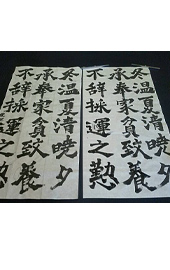 冬温夏清曉夕
承奉家貧致養
不辞採運之懃
冬温夏清曉夕
承奉家貧致養
不辞採運之懃